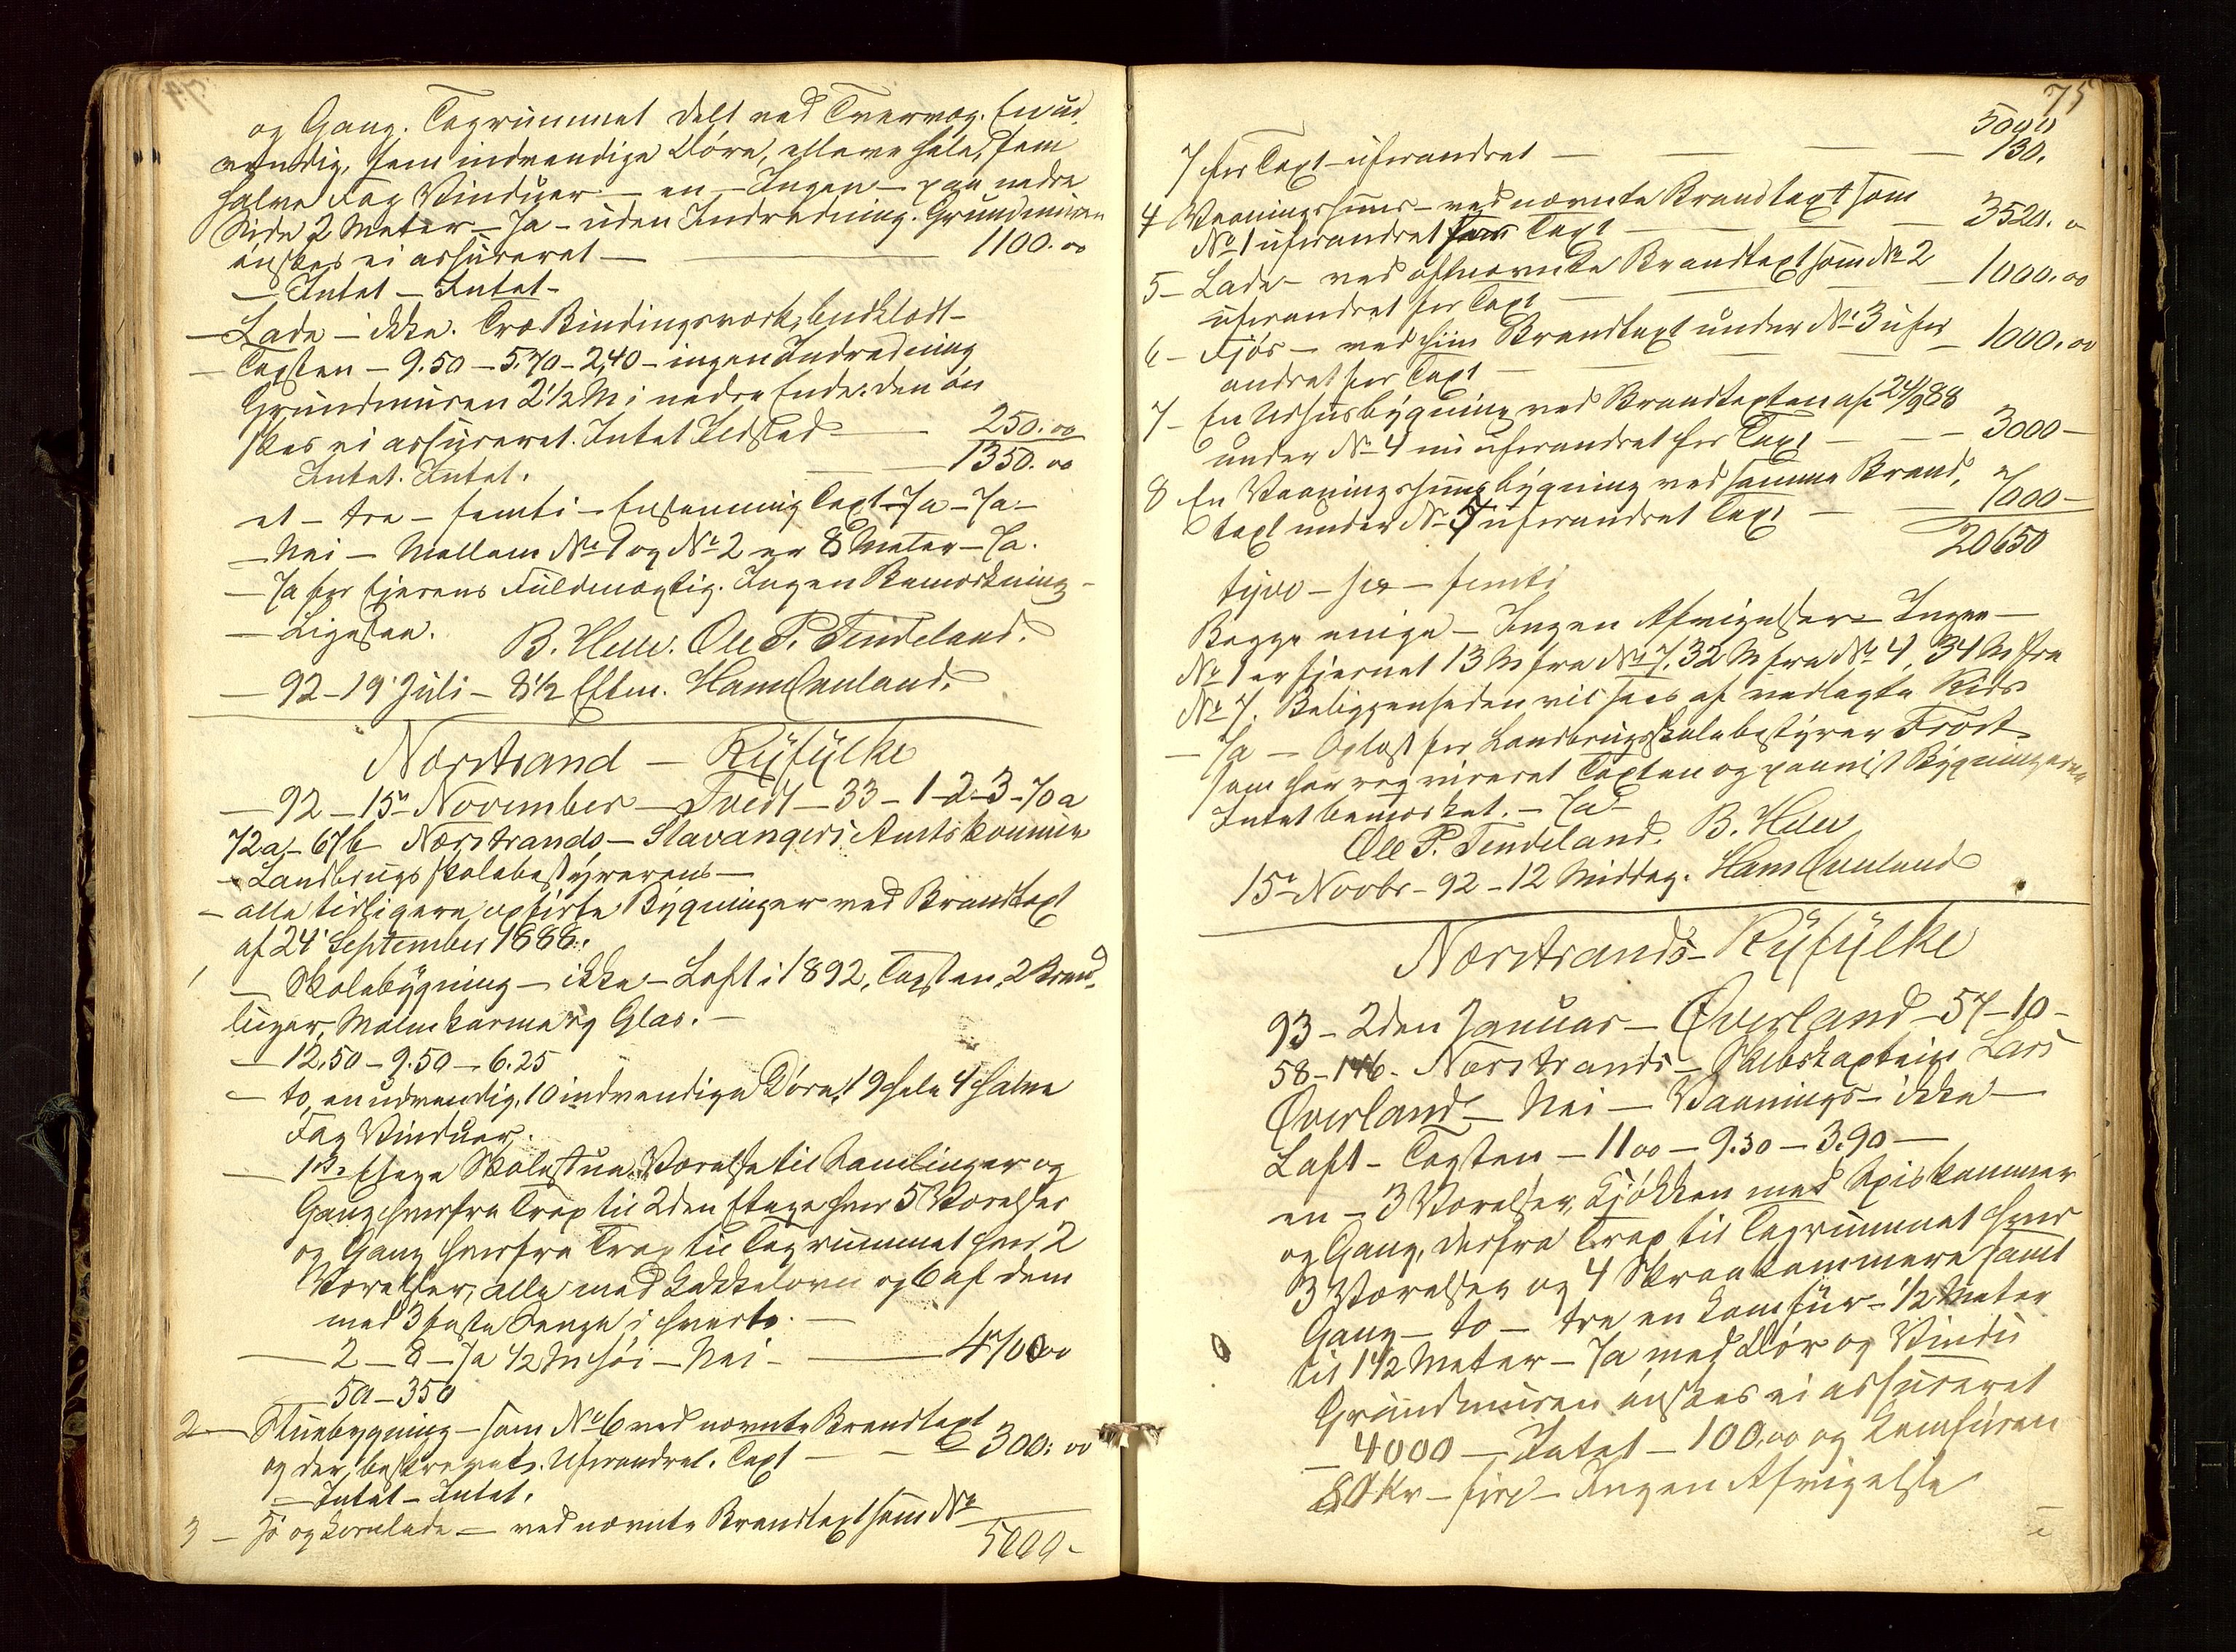 og Gang. Tagrummet delt ved Tvervæg. En ud,
vendig, fem indvendige Döre, elleve hele, fem
halve Fag Vinduer – en – Ingen – paa nedre
Side 2 Meter – Ja – uden Indredning. Grundmuren
önskes ei assureret — 1100.00
— Intet – Intet –
— Lade – ikke. Træ Bindingsværk, bordklædt –
— Tagsten – 9.50 – 5.70 – 2,40 – ingen Indredning
Grundmuren 2 1/2 M i nedre Ende. Den ön
skes ei assureret. Intet Ildsted — 250.00
Intet. Intet. — 1350.00
et – tre – femti – Enstemmig Taxt – Ja – Ja –
— Nei – Mellem No 1 og No 2 er 8 Meter – Ja.
— Ja for Eierens Fuldmægtig. Ingen Bemærkning –
— Ligesaa. B. Helle. Ole P. Tendeland.
— 92 – 19 Juli – 8 1/2 Eftm. Hans Qualand.
Nærstrand — Ryfylke
— 92 – 15de November – Tvedt – 33 – 1-2-3-70a
72a – 67b Nærstrands – Stavangers Amtskommune
– Landbrugsskolebestyrerens –
– alle tidligere opförte Bygninger ved Brandtaxt
af 24' September 1888.
1 — Skolebygning – ikke – Laft i 1892, Tagsten, 2 Brand,
luger, Malmkarme og Glas. –
— 12.50 – 9.50 – 6.25
– to, en udvendig, 10 indvendige Döre, 19 hele 4 halve
Fag Vinduer.
— 1ste Etage Skolestue, Værelse til Samlinger og
Gang hvorfra Trap til 2den Etage hvor 5 Værelser
og Gang hvorfra Trap til Tagrummet hvor 2
Værelser, alle med Kakkelovn og 6 af dem
med 3 faste Senge i hverts. –
— 2 – 8 – Ja 1/2 M höi – Nei – — 4700 00
— 50 – 350
2 — Stuebygning – som No 6 ved nævnte Brandtaxt
og der beskrevet. Uforandret. Taxt — 300: 00
– Intet – Intet.
3 — Hö og Kornlade – ved nævnte Brandtaxt som No
5000 –
75
5000
7 for Taxt uforandret — 130.
4 Vaaningshuus – ved nævnte Brandtaxt som
No 1 uforandret Taxt — 3520. 0
5 – Lade – ved oftnævnte Brandtaxt som No 2
uforandret for Taxt — 1000.00
6 – Fjös – ved hiin Brandtaxt under No 3 ufor
andret for Taxt — 1000.00
7 – En Udhusbygning ved Brandtaxten af 24/9 88
under No 4 nu uforandret for Taxt — 3000 –
8 En Vaaningshuusbygning ved samme Brand,
taxt under No 5 uforandret Taxt — 7000 –
20650
tyve – sex – femti
Begge enige – Ingen Afvigelser – Ingen –
No 1 er fjernet 13 M fra No 7, 32 M fra No 4, 34 M fra
No 7. Beliggenheden vil sees af vedlagte Rids
– Ja – Oplæst for Landbrugsskolebestyrer Frost
som har reqvireret Taxten og paavist Bygningerne
Intet bemærket. – Ja –
Ole P. Tendeland. B. Helle
15de Novbr – 92 – 12 Middag. Hans Qualand
Nærstrands – Ryfylke
93 – 2den Januar – Øverland – 57 – 10 –
58 – 146 – Nærstrands – Skibskaptein Lars
Øverland – Nei – Vaanings – ikke –
Laft – Tagsten – 11 00 – 9.30 – 3.90 –
en – 3 Værelser, Kjökken med Spiskammer
og Gang, derfra Trap til Tagrummet hvor
3 Værelser og 4 Skraakammere samt
Gang – to – tre en Komfur – 1/2 Meter
til 1 1/2 Meter – Ja med Dör og Vindu
Grundmuren önskes ei assureret
– 4000 – Intet – 100.00 og Komfuren
80 Kr – fire – Ingen Afvigelse